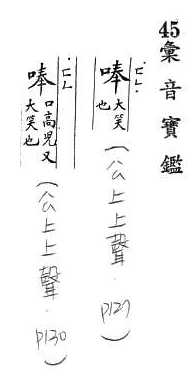 45彙音寶鑑
唪大笑也(公上上聲.P129)
唪口高皃又大笑也(公上上聲.P130)